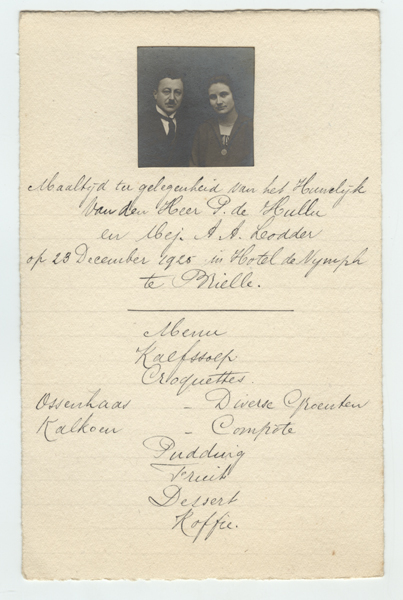 Maaltijd ter gelegenheid van het Huwelijk
van den Heer P. de Hullu
en Mej. A. A. Lodder
op 23 December 1925 in Hotel de Nymph
te Brielle.
Menu
Kalfssoep
Croquettes.
Ossenhaas - Diverse Groenten
Kalkoen - Compote
Pudding
Fruit
Dessert
Koffie.